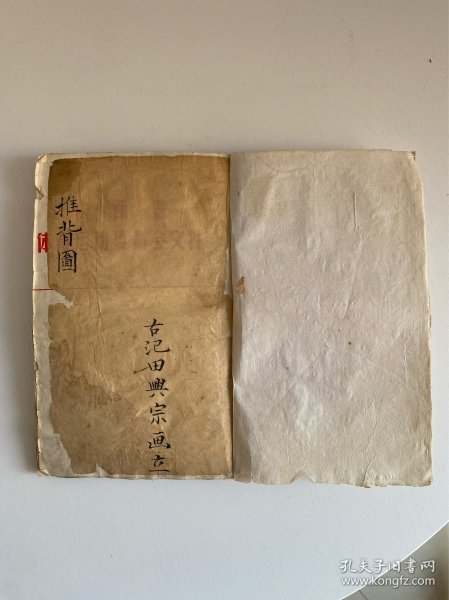 推背圖
古记田興宗画立
孔夫子旧书网
www.kongfz.com